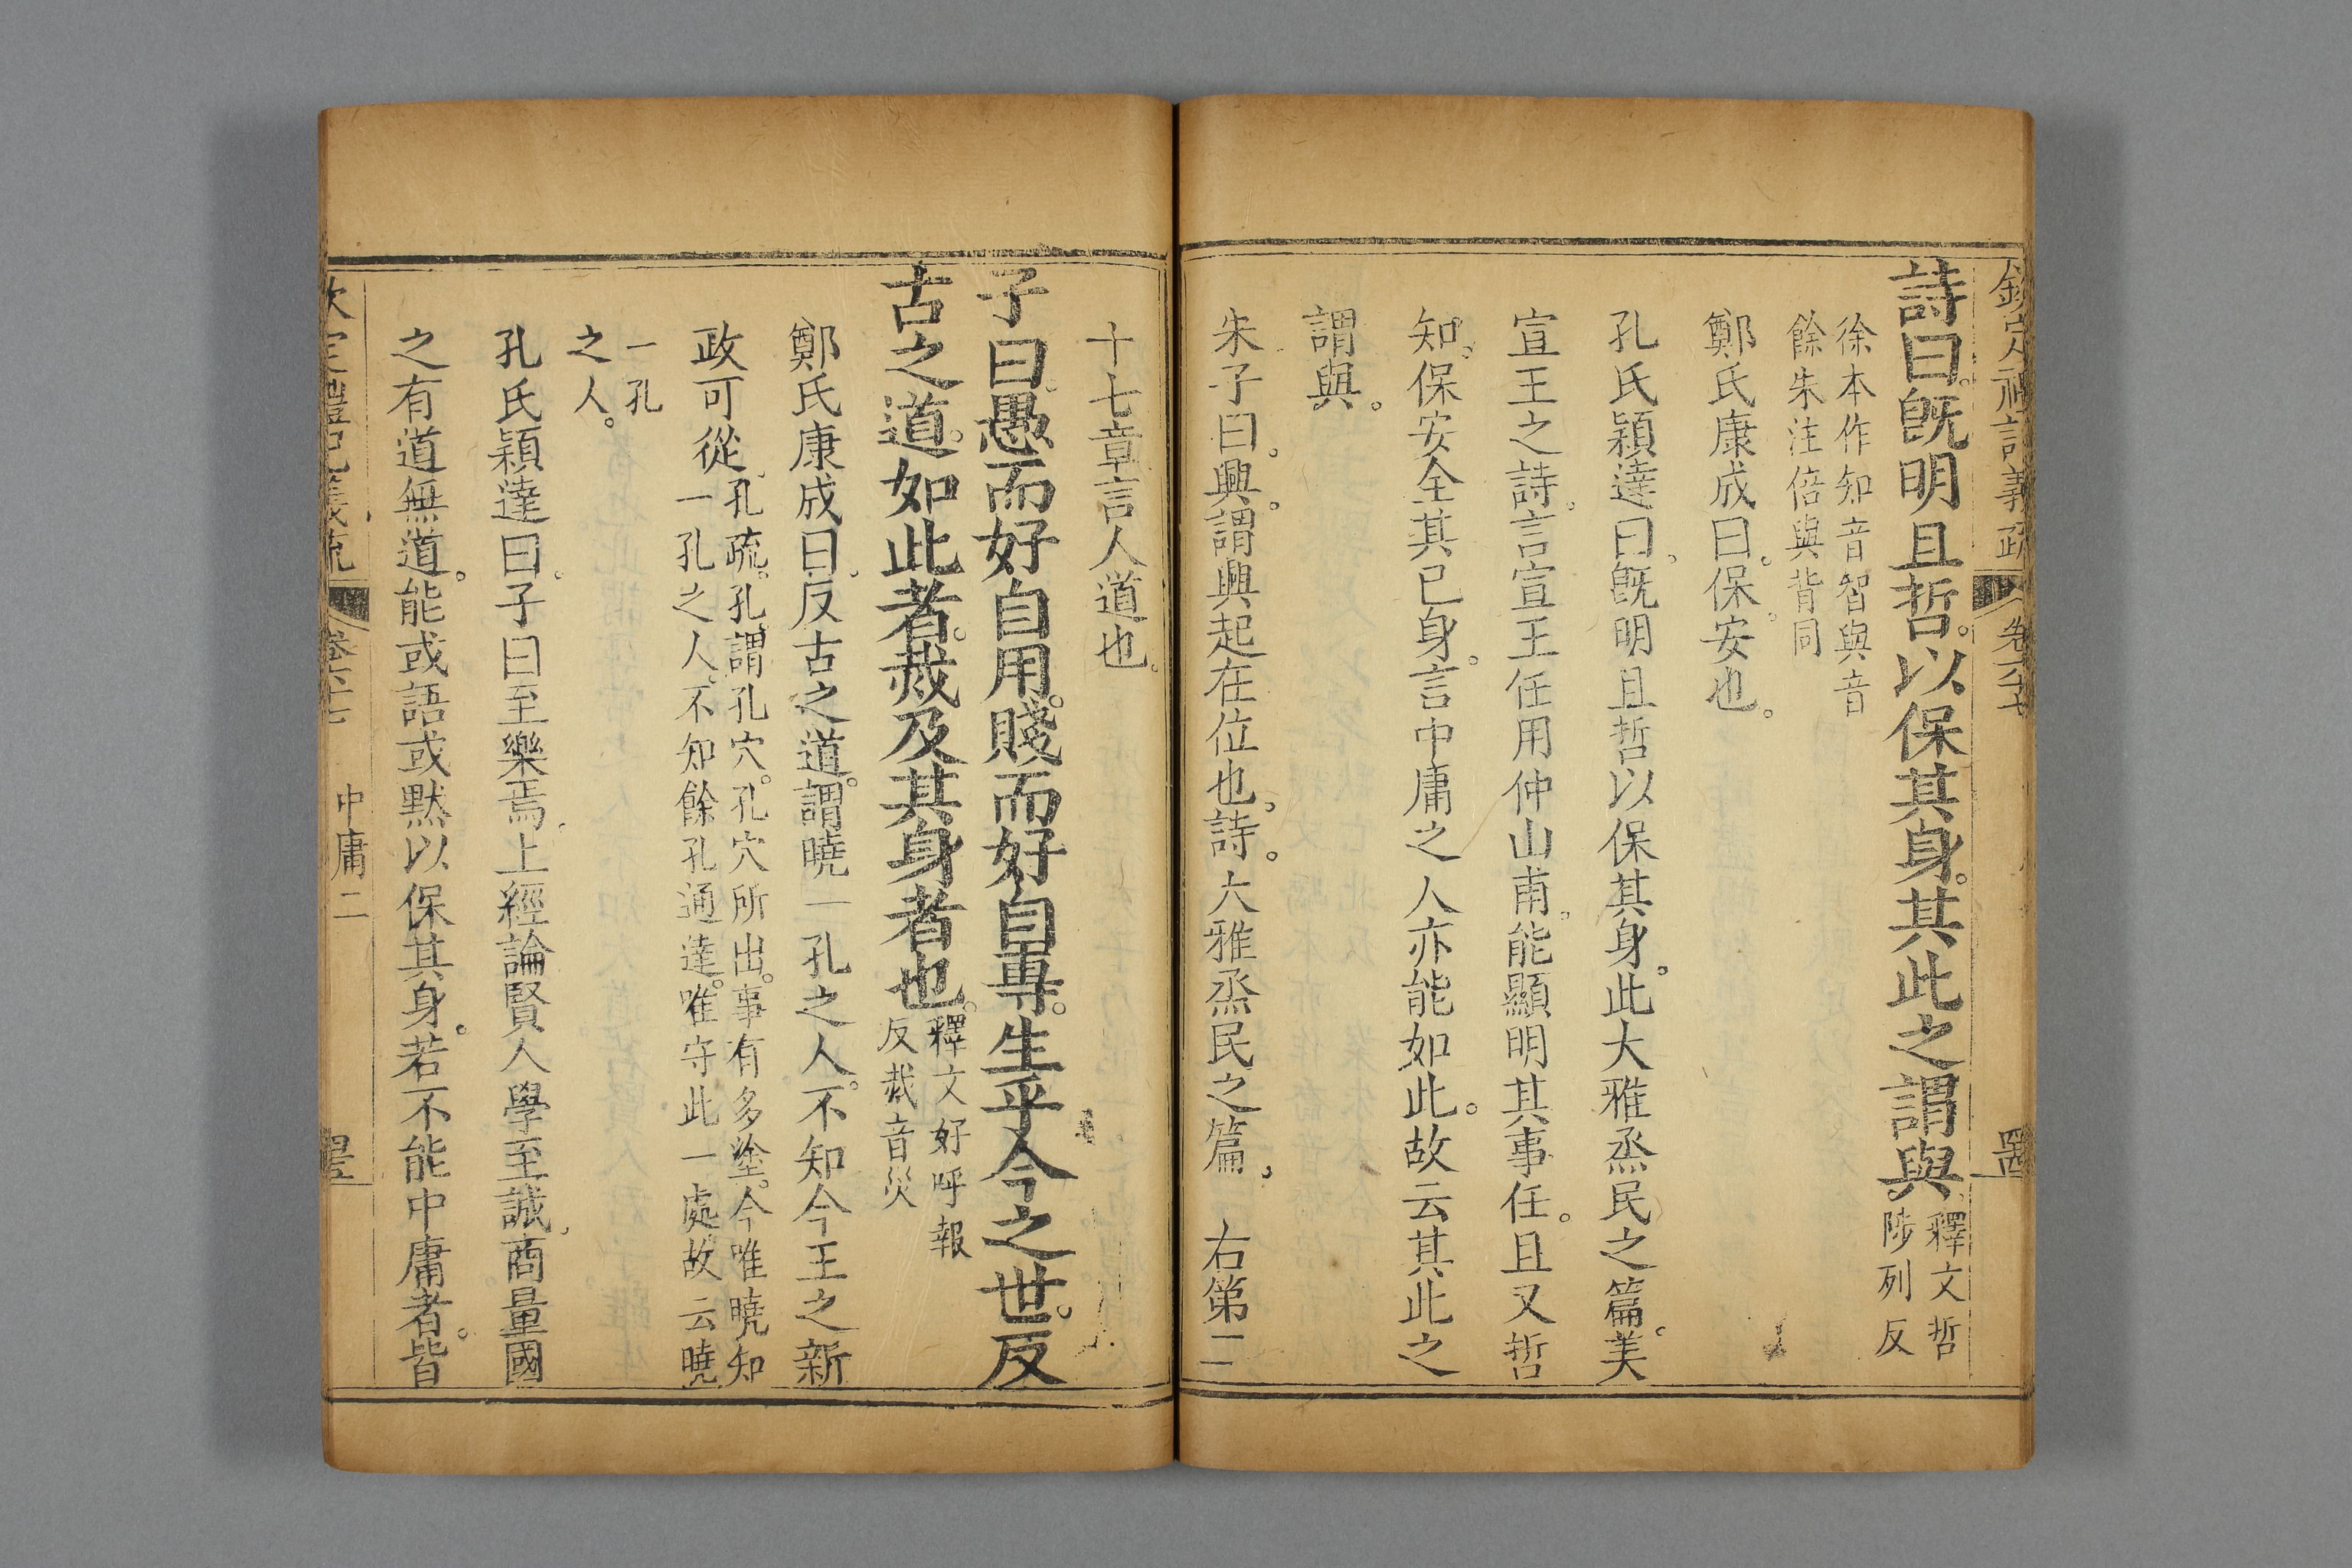 欽定禮記義疏 卷六十七 
詩曰。旣明且哲。以保其身。其此之謂與。釋文哲
陟列反
徐本作知音智與音
餘朱注倍與背同
鄭氏康成曰。保。安也。
孔氏穎達曰。旣明且哲以保其身。此大雅烝民之篇。美
宣王之詩。言宣王任用仲山甫。能顯明其事任。且又哲
知。保安全其己身。言中庸之人亦能如此。故云其此之
謂與。
朱子曰。興。謂興起在位也。詩。大雅烝民之篇。 右第二
十七章言人道也。
子曰。愚而好自用。賤而好自專。生乎今之世。反
古之道。如此者。烖及其身者也。釋文好呼報
反烖音災
鄭氏康成曰。反古之道。謂曉一孔之人。不知今王之新
政可從。孔疏。孔謂孔穴。孔穴所出。事有多塗。今唯曉知
一孔之人。不知餘孔通達。唯守此一處。故云曉
一孔
之人。
孔氏穎達曰。子曰至樂焉。上經論賢人學至誠。商量國
之有道無道。能或語或默以保其身。若不能中庸者。皆
欽定禮記義疏 卷六十七 中庸二